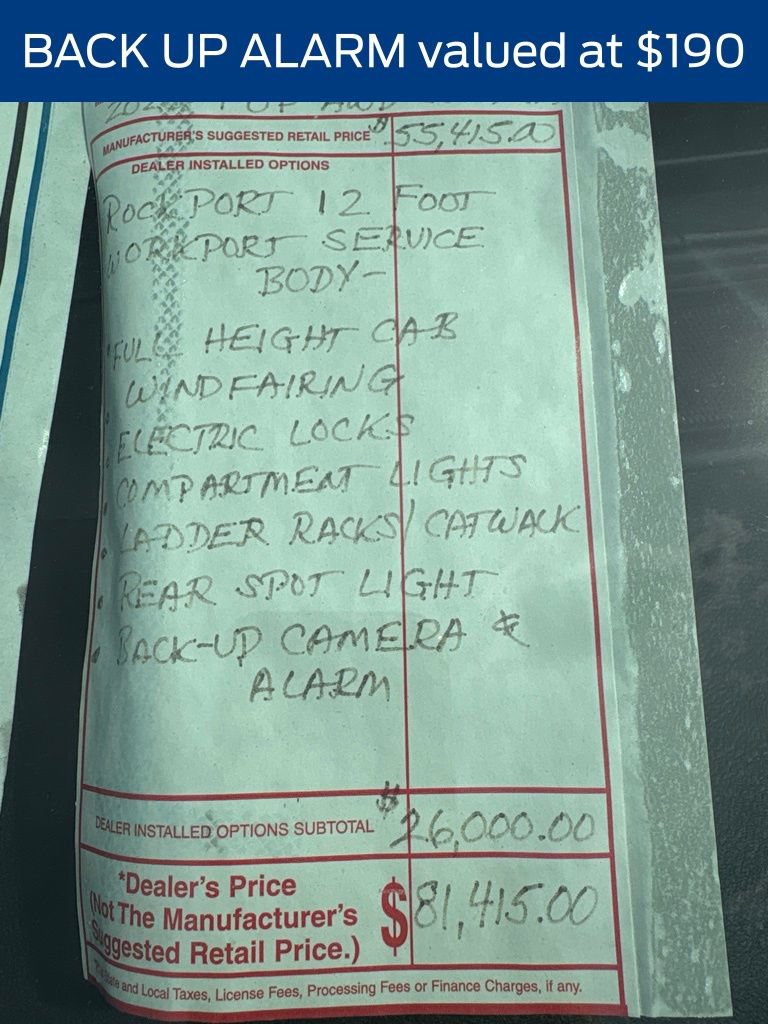 BACK UP ALARM valued at $190
MANUFACTURER'S SUGGESTED RETAIL PRICE $55,415.00
DEALER INSTALLED OPTIONS
ROCKPORT 12 FOOT
WORKPORT SERVICE
BODY-
• FULL HEIGHT CAB
WINDFAIRING
• ELECTRIC LOCKS
• COMPARTMENT LIGHTS
• LADDER RACKS/CATWALK
• REAR SPOT LIGHT
• BACK-UP CAMERA &
ALARM
DEALER INSTALLED OPTIONS SUBTOTAL $26,000.00
*Dealer's Price
(Not The Manufacturer's
Suggested Retail Price.) $81,415.00
State and Local Taxes, License Fees, Processing Fees or Finance Charges, if any.